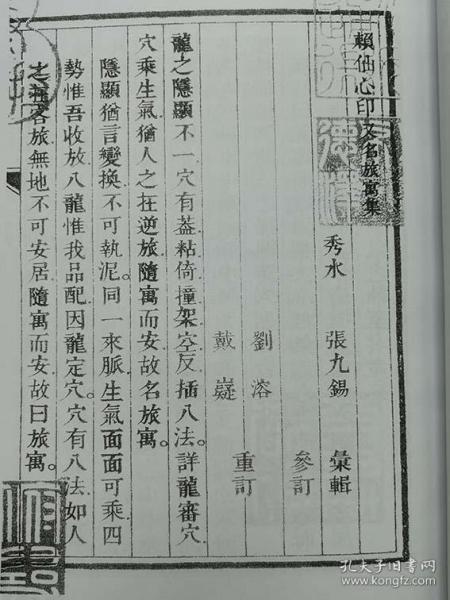 賴仙心印又名旅寓集
秀水 張九錫 彙輯
參訂
劉溶
戴嶷 重訂
龍之隱顯不一穴有蓋粘倚撞架空反插八法。詳龍審穴
穴乘生氣猶人之在逆旅隨寓而安故名旅寓。
隱顯猶言變換不可執泥。同一來脈生氣面面可乘四
勢惟吾收放八龍惟我品配因龍定穴。穴有八法如人
之在客旅無地不可安居隨寓而安故曰旅寓。
孔夫子旧书网
www.kongfz.com